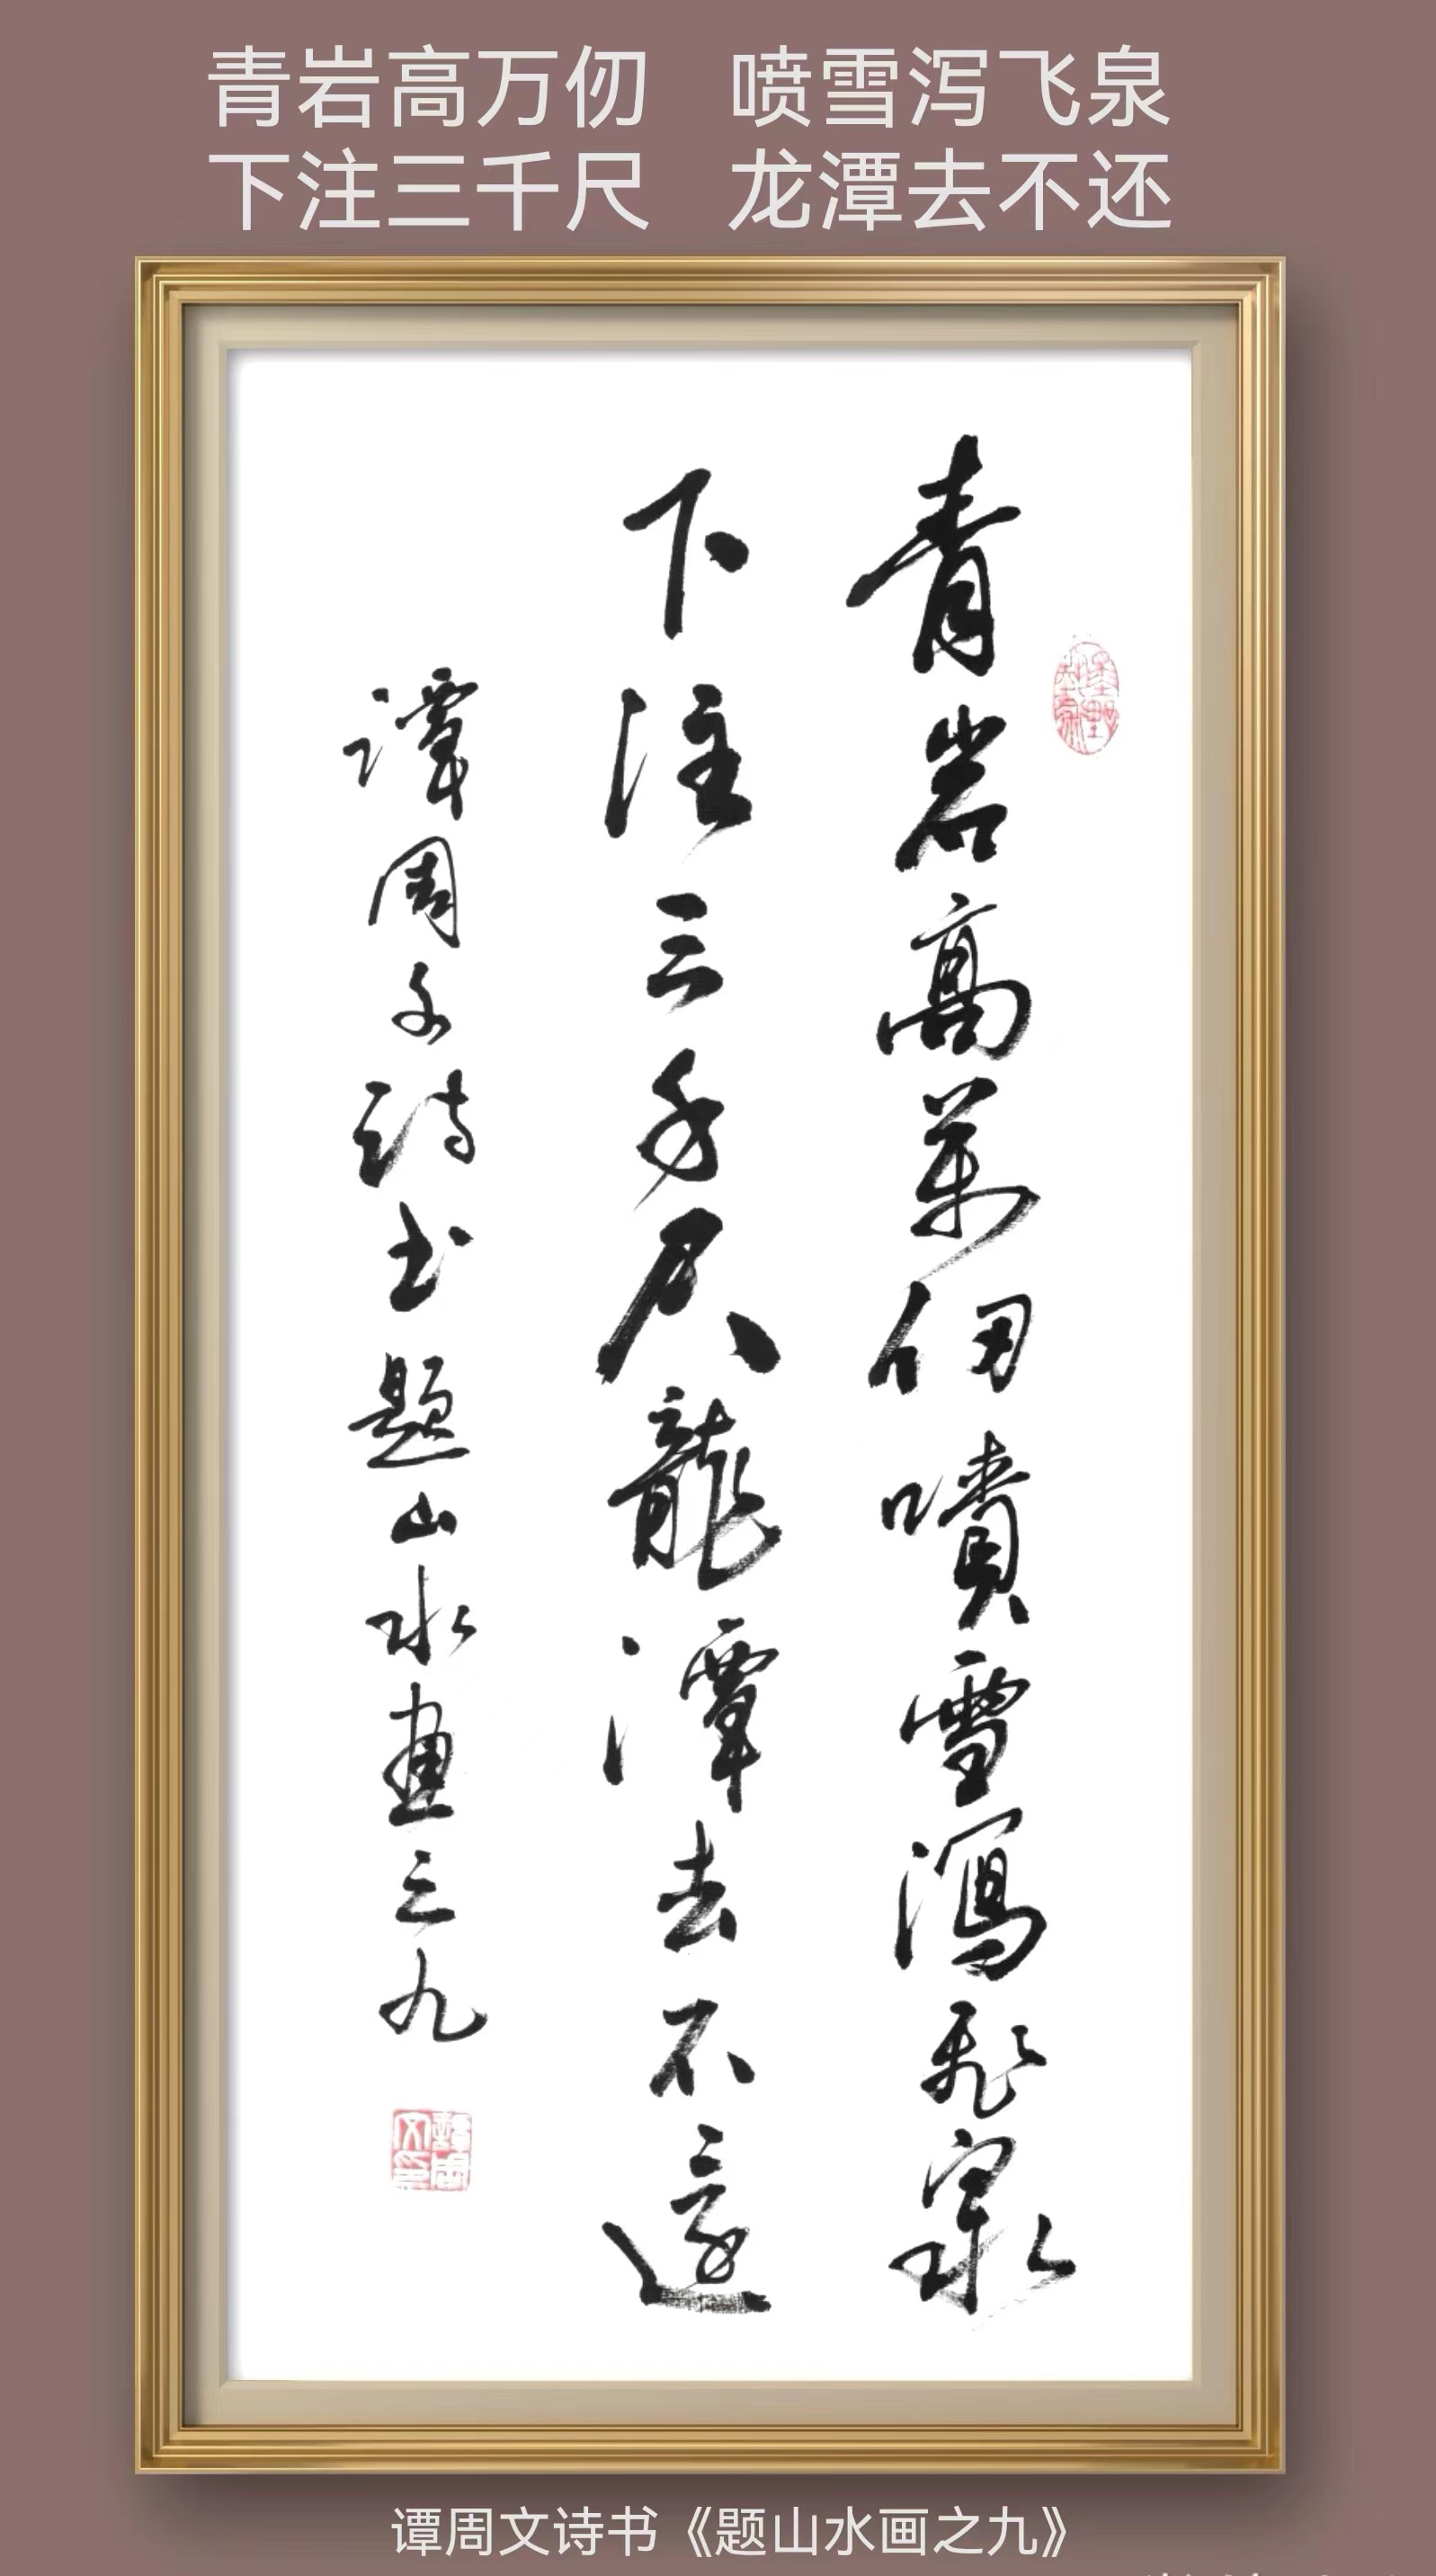 青岩高万仞 喷雪泻飞泉
下注三千尺 龙潭去不还
青岩高萬仞噴雪瀉飛泉
下注三千尺龍潭去不還
谭周文詩书題山水畫之九
谭周文诗书《题山水画之九》